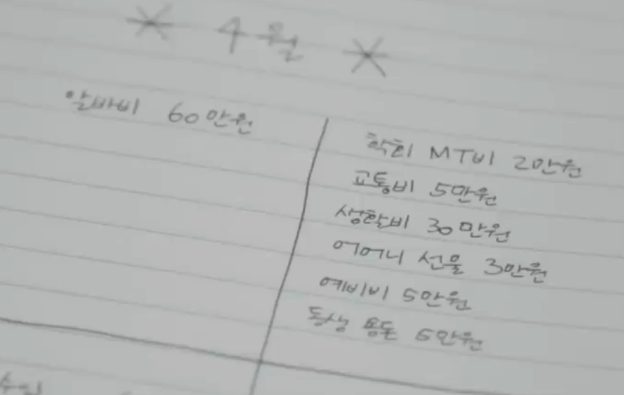 * 4월 *
알바비 60만원
학회 MT비 2만원
교통비 5만원
생활비 30만원
어머니 선물 3만원
예비비 5만원
동생 용돈 5만원